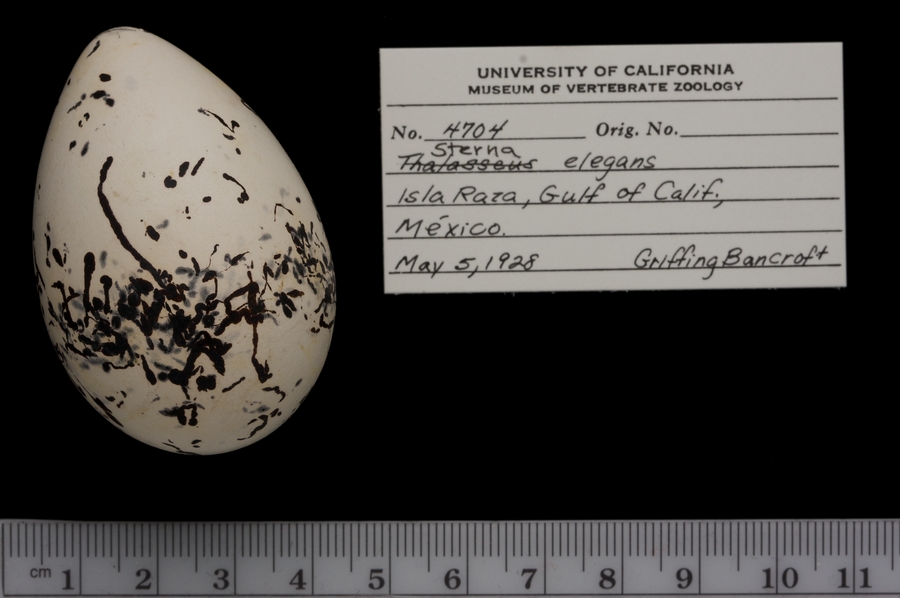 UNIVERSITY OF CALIFORNIA
MUSEUM OF VERTEBRATE ZOOLOGY
No. 4704 Orig. No.
Sterna
Thalasseus elegans
Isla Raza, Gulf of Calif.,
México.
May 5, 1928 Griffing Bancroft
cm 1 2 3 4 5 6 7 8 9 10 11